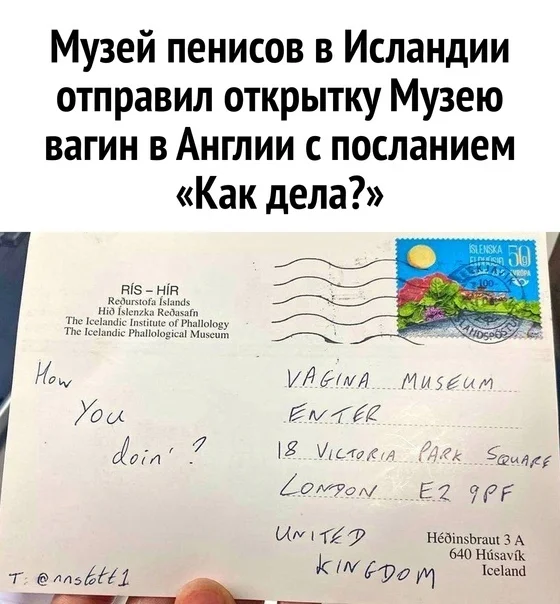 Музей пенисов в Исландии
отправил открытку Музею
вагин в Англии с посланием
«Как дела?»
ÍSLENSKA
50g
EVRÓPA
RÍS – HÍR
Reðurstofa Íslands
Hið Íslenzka Reðasafn
The Icelandic Institute of Phallology
The Icelandic Phallological Museum
How
You
doin' ?
VAGINA MUSEUM
ENTER
18 VICTORIA PARK SQUARE
LONDON E2 9PF
UNITED
KINGDOM
Héðinsbraut 3 A
640 Húsavík
Iceland